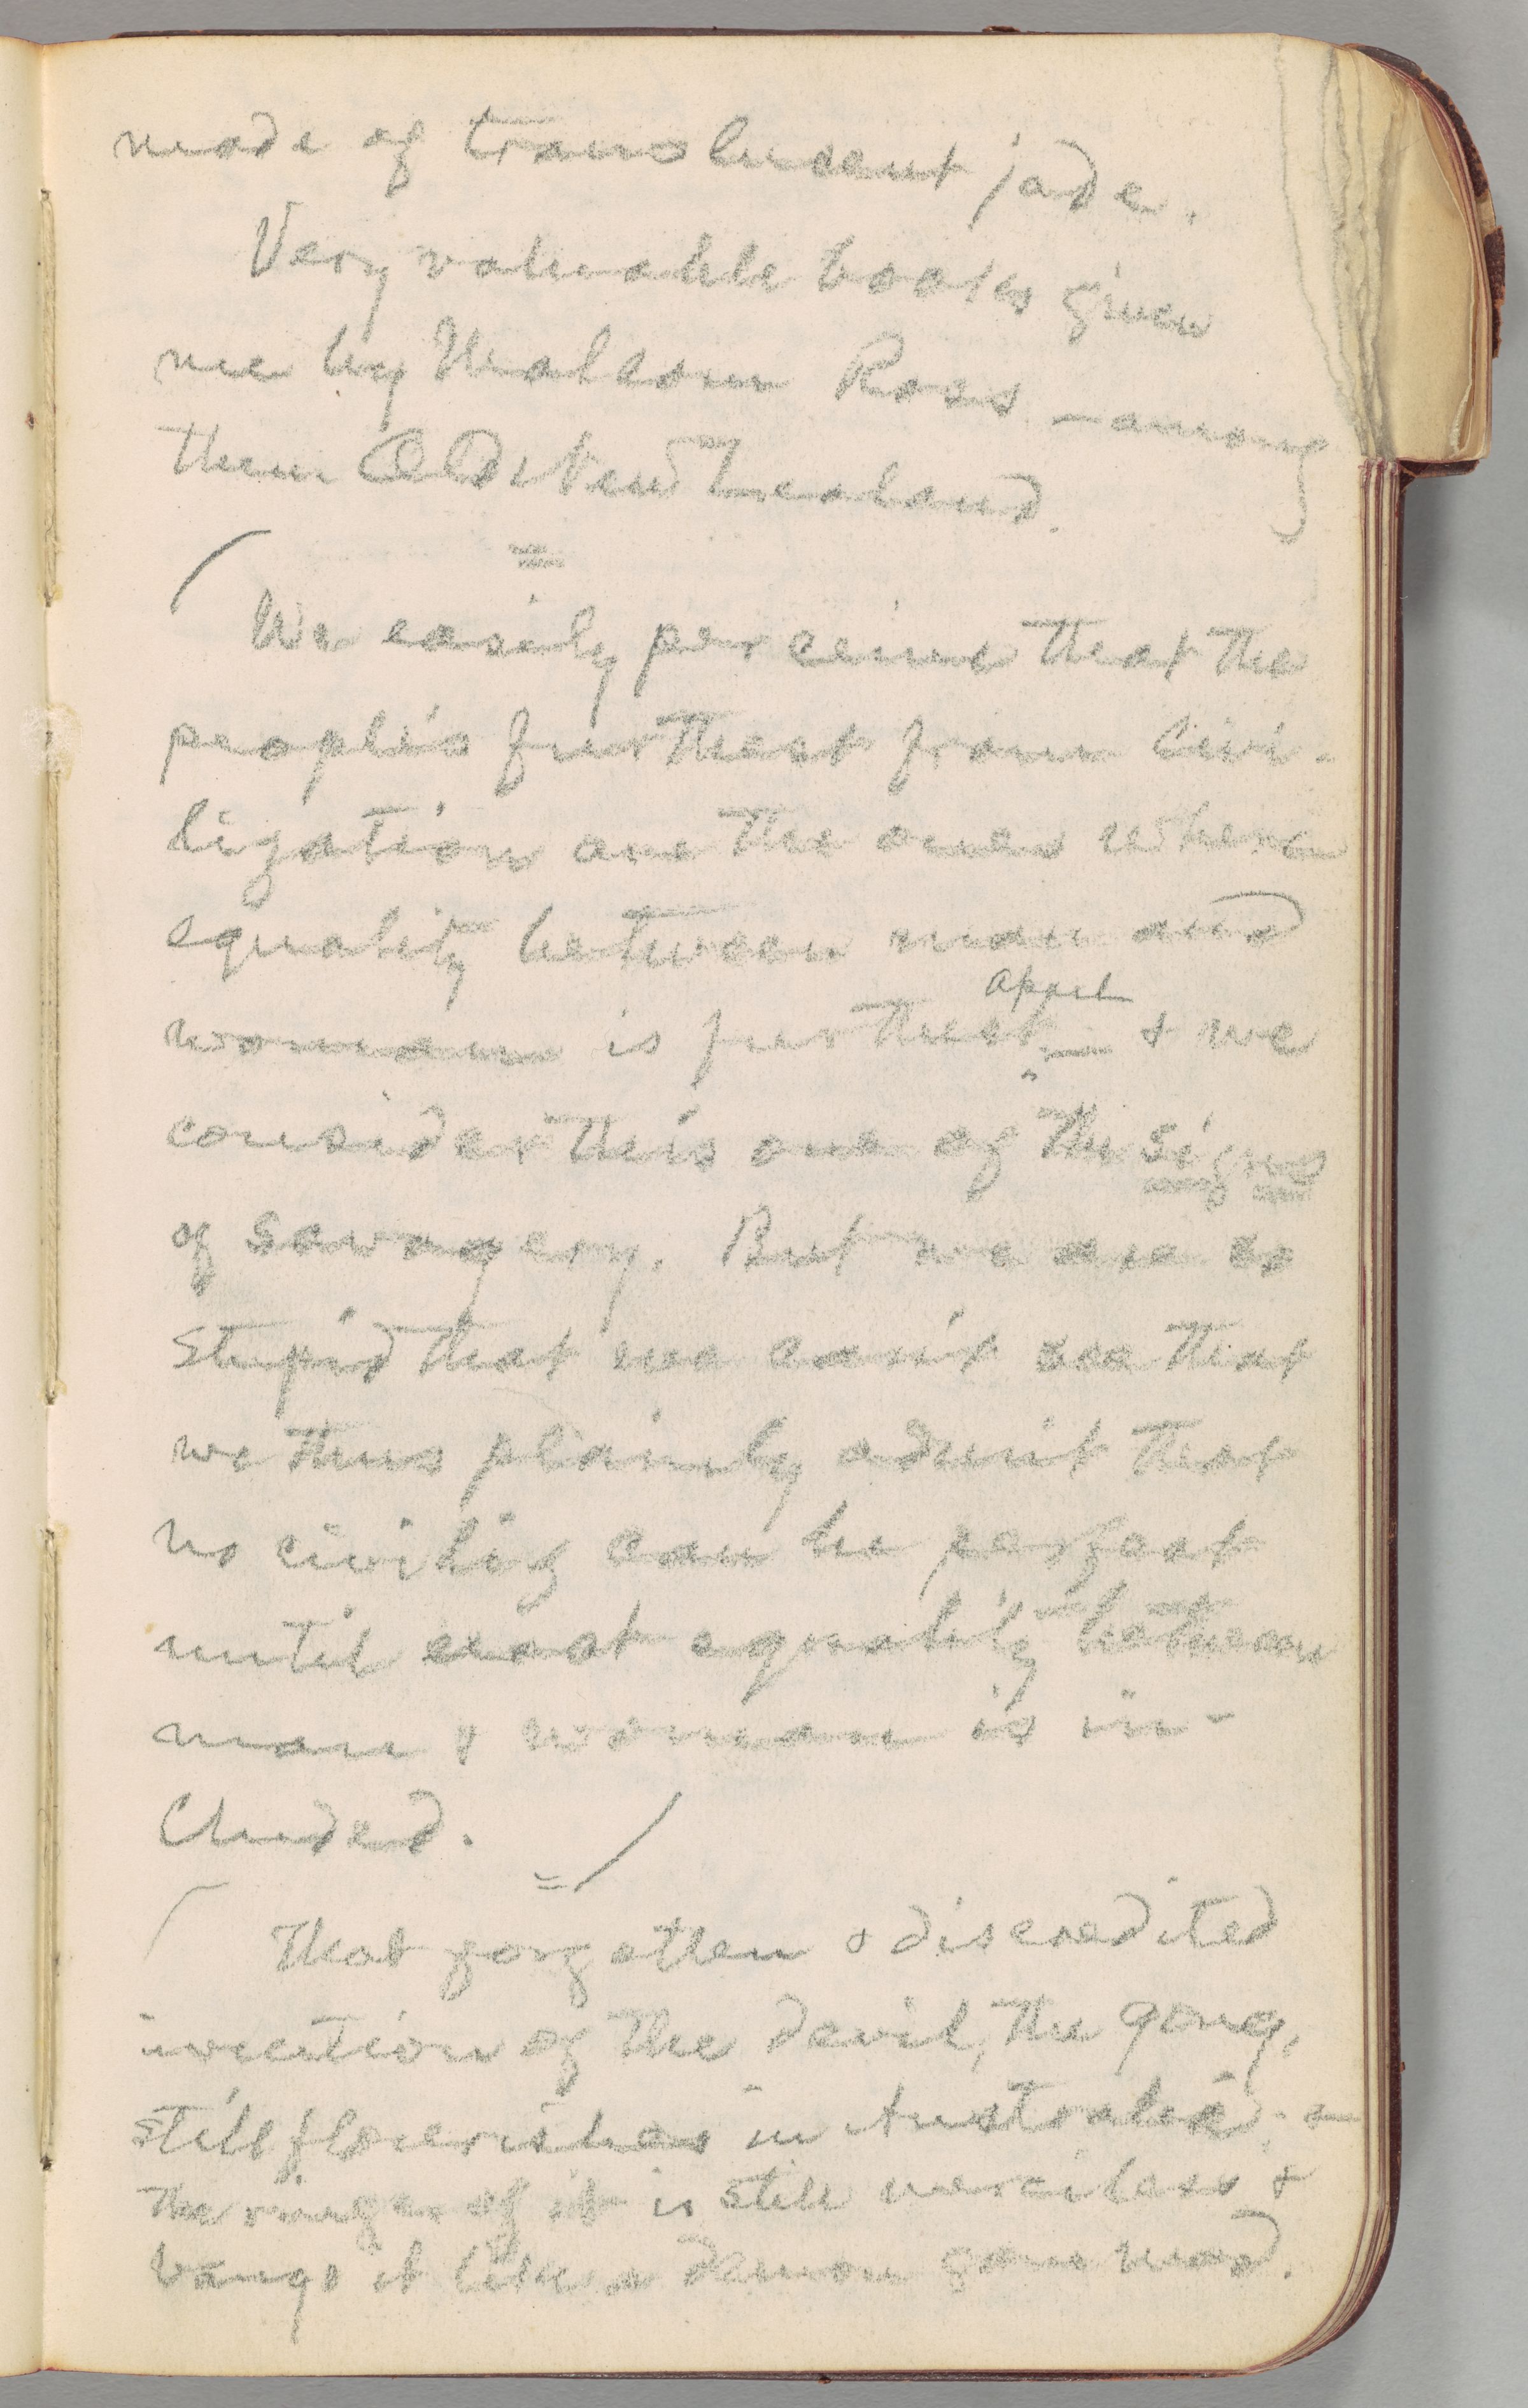 made of translucent jade.
Very valuable books given
me by Malcom Ross – among
them Old New Zealand.
=
We easily perceive that the
peoples furthest from civi-
lization are the ones where
equality between man and
apart
woman is furthest – & we
consider this one of the signs
of savagery. But we are so
stupid that we can't see that
we thus plainly admit that
no civiliz can be perfect
until exact equality between
man & woman is in-
cluded.
=
That forgotten & discredited
invention of the devil, the gong,
still flourishes in Australia; &
the ringer of it is still merciless &
bangs it like a demon gone mad.